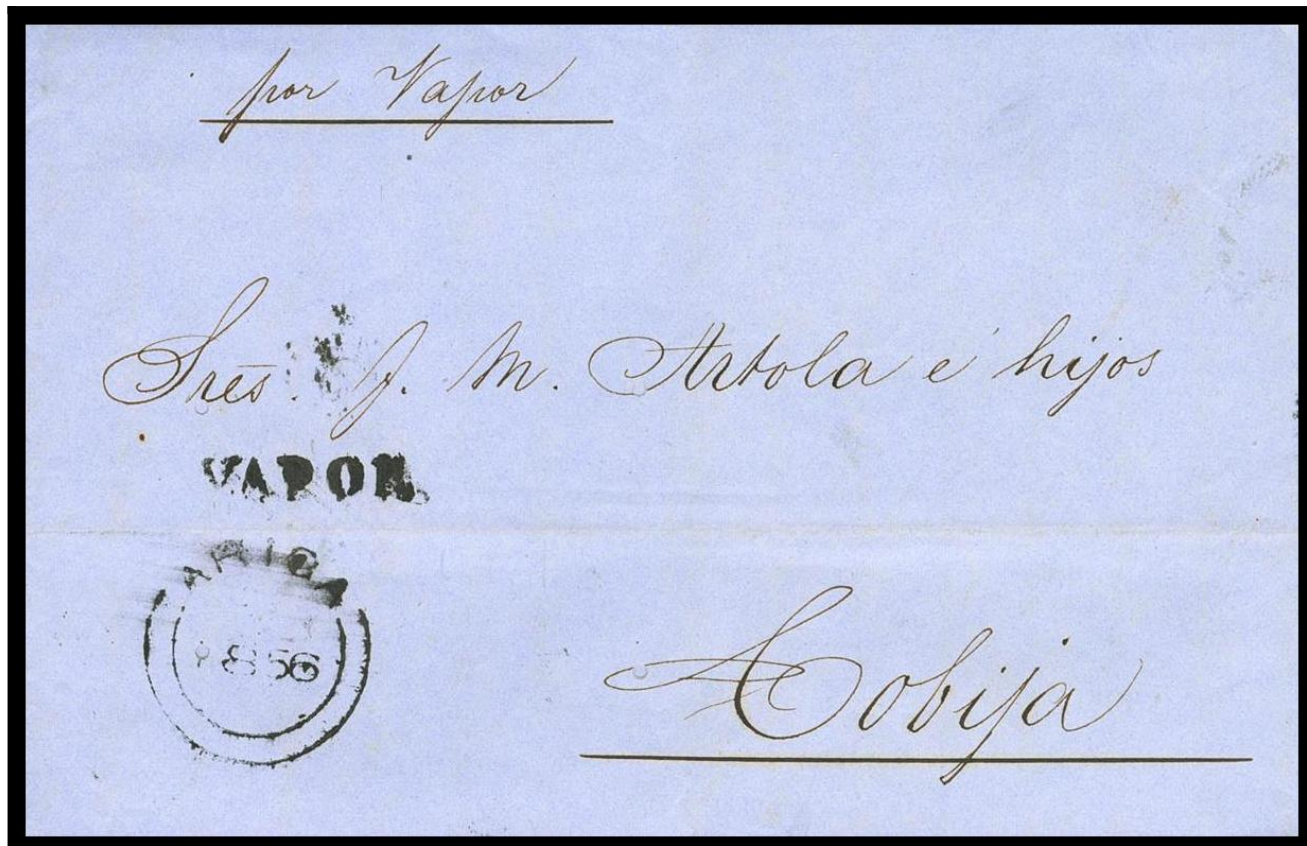 por Vapor
Sres. J. M. Artola é hijos
VAPOR
ARICA
856
Cobija